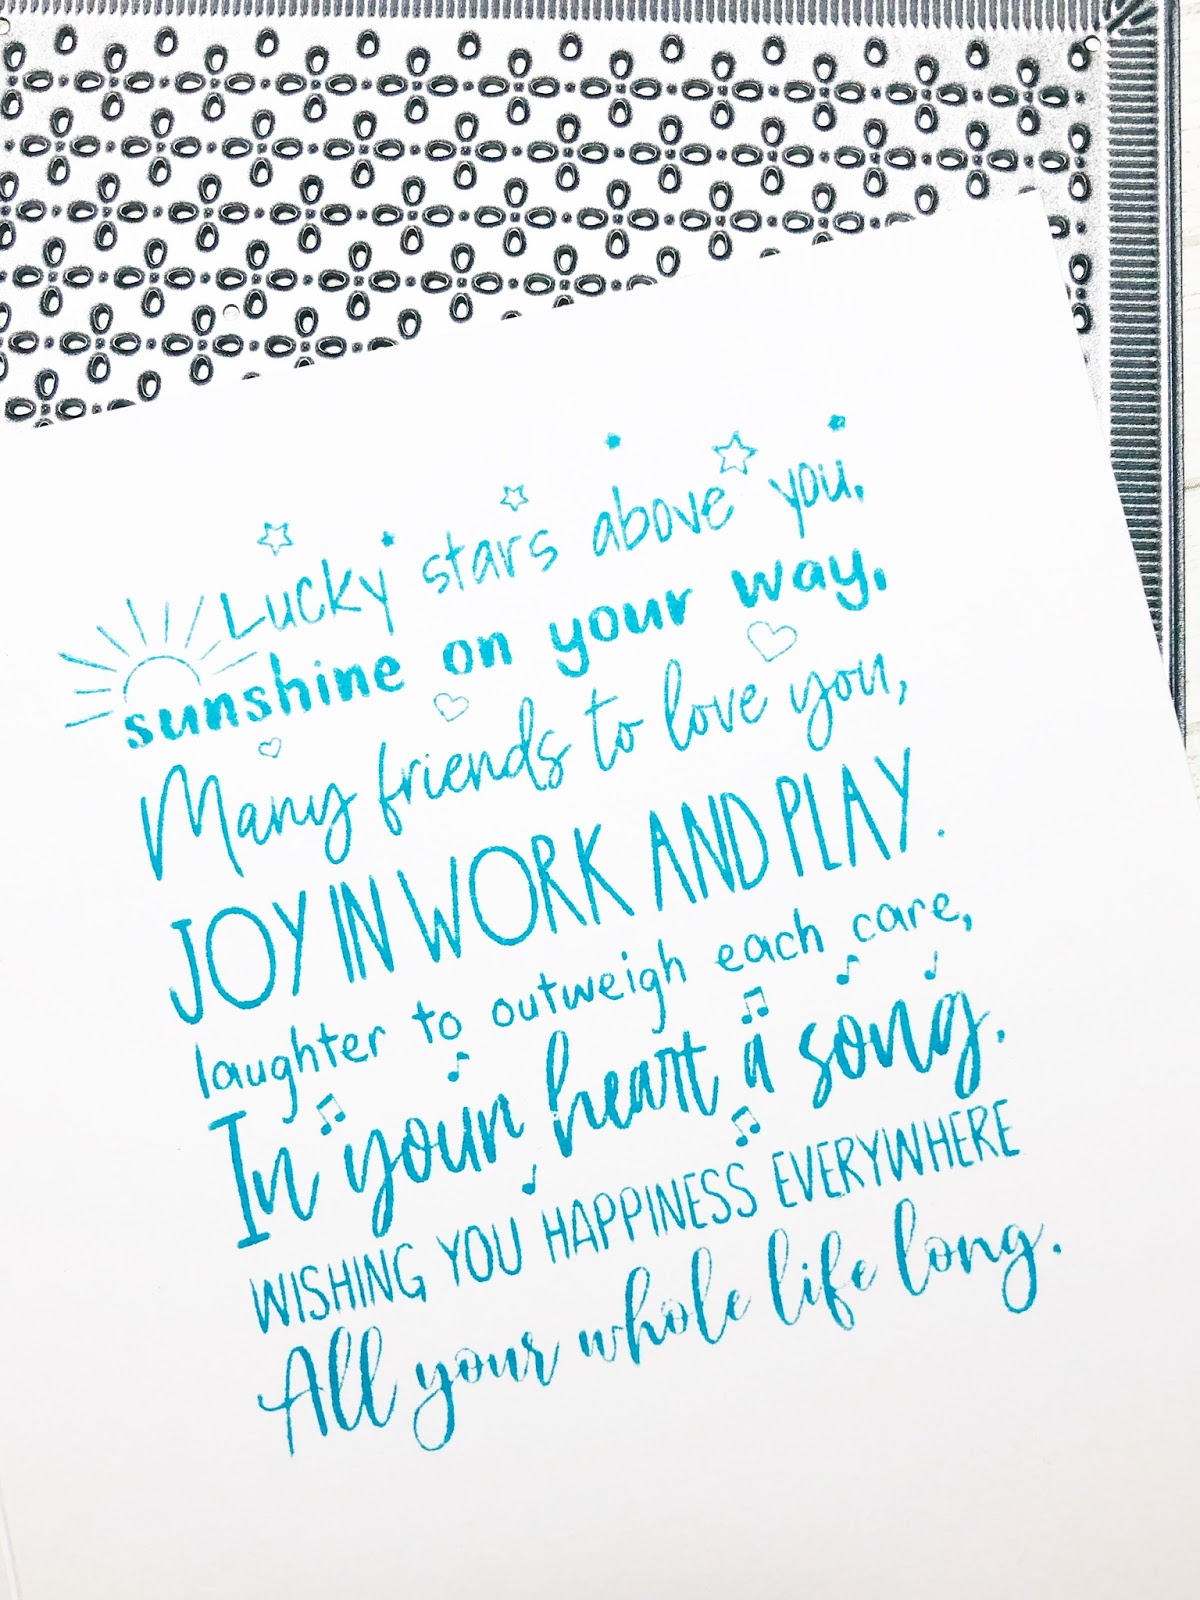 Lucky stars above you.
sunshine on your way.
Many friends to love you,
JOY IN WORK AND PLAY.
laughter to outweigh each care,
In your heart a song.
WISHING YOU HAPPINESS EVERYWHERE
All your whole life long.